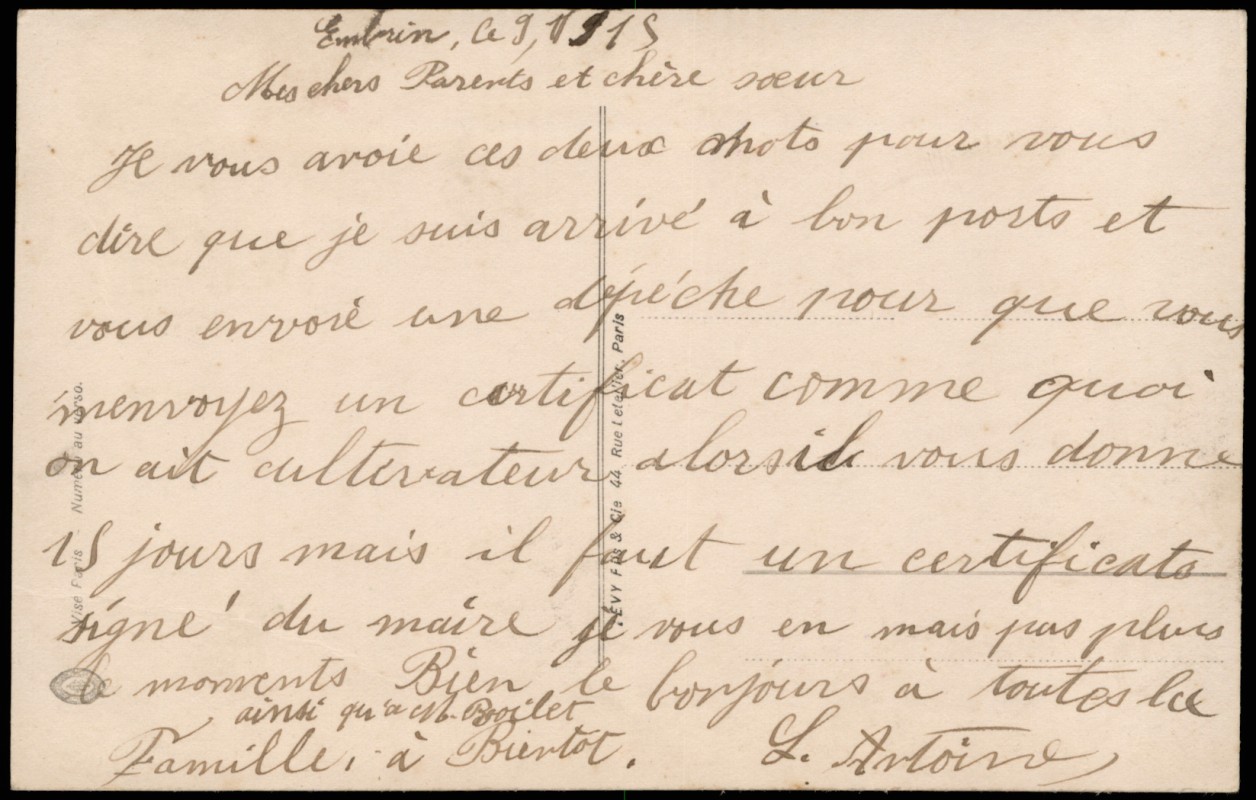 Embrin, le 9, 1915
Mes chers Parents et chère sœur
Je vous avoie ces deux mots pour vous
dire que je suis arrivé à bon ports et
vous envoié une dépéche pour que vous
menvoyez un certificat comme quoi
on ait cultivateur alors il vous donne
15 jours mais il faut un certificats
signé du maire je vous en mais pas plus
le moments Bien le bonjours à toutes la
ainsi qu'a M. Boilet
Famille, à Bientôt. L. Antoine
LÉVY Fils & Cie 44, Rue Letellier, Paris
Visé Paris Numéro au verso.